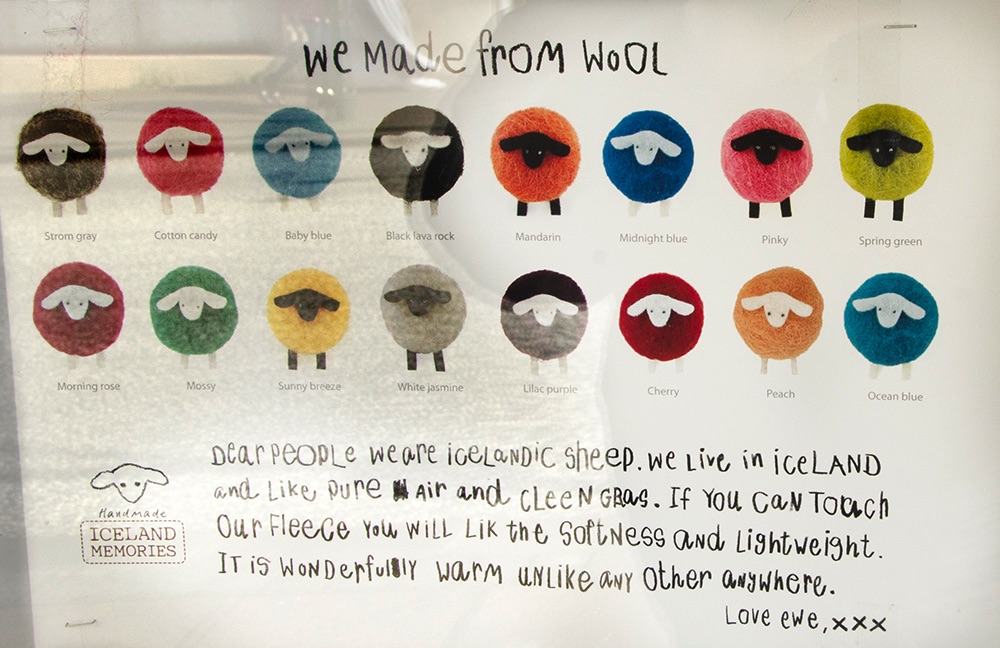 we made from wool
Strom gray Cotton candy Baby blue Black lava rock Mandarin Midnight blue Pinky Spring green
Morning rose Mossy Sunny breeze White jasmine Lilac purple Cherry Peach Ocean blue
Dear People we are icelandic sheep. we live in iceLAND
and Like pure Air and cleen gras. If you can Touch
Our Fleece you will Lik the softness and Lightweight.
It is wonderfully warm unlike any other anywhere.
Love ewe, xxx
Handmade
ICELAND
MEMORIES